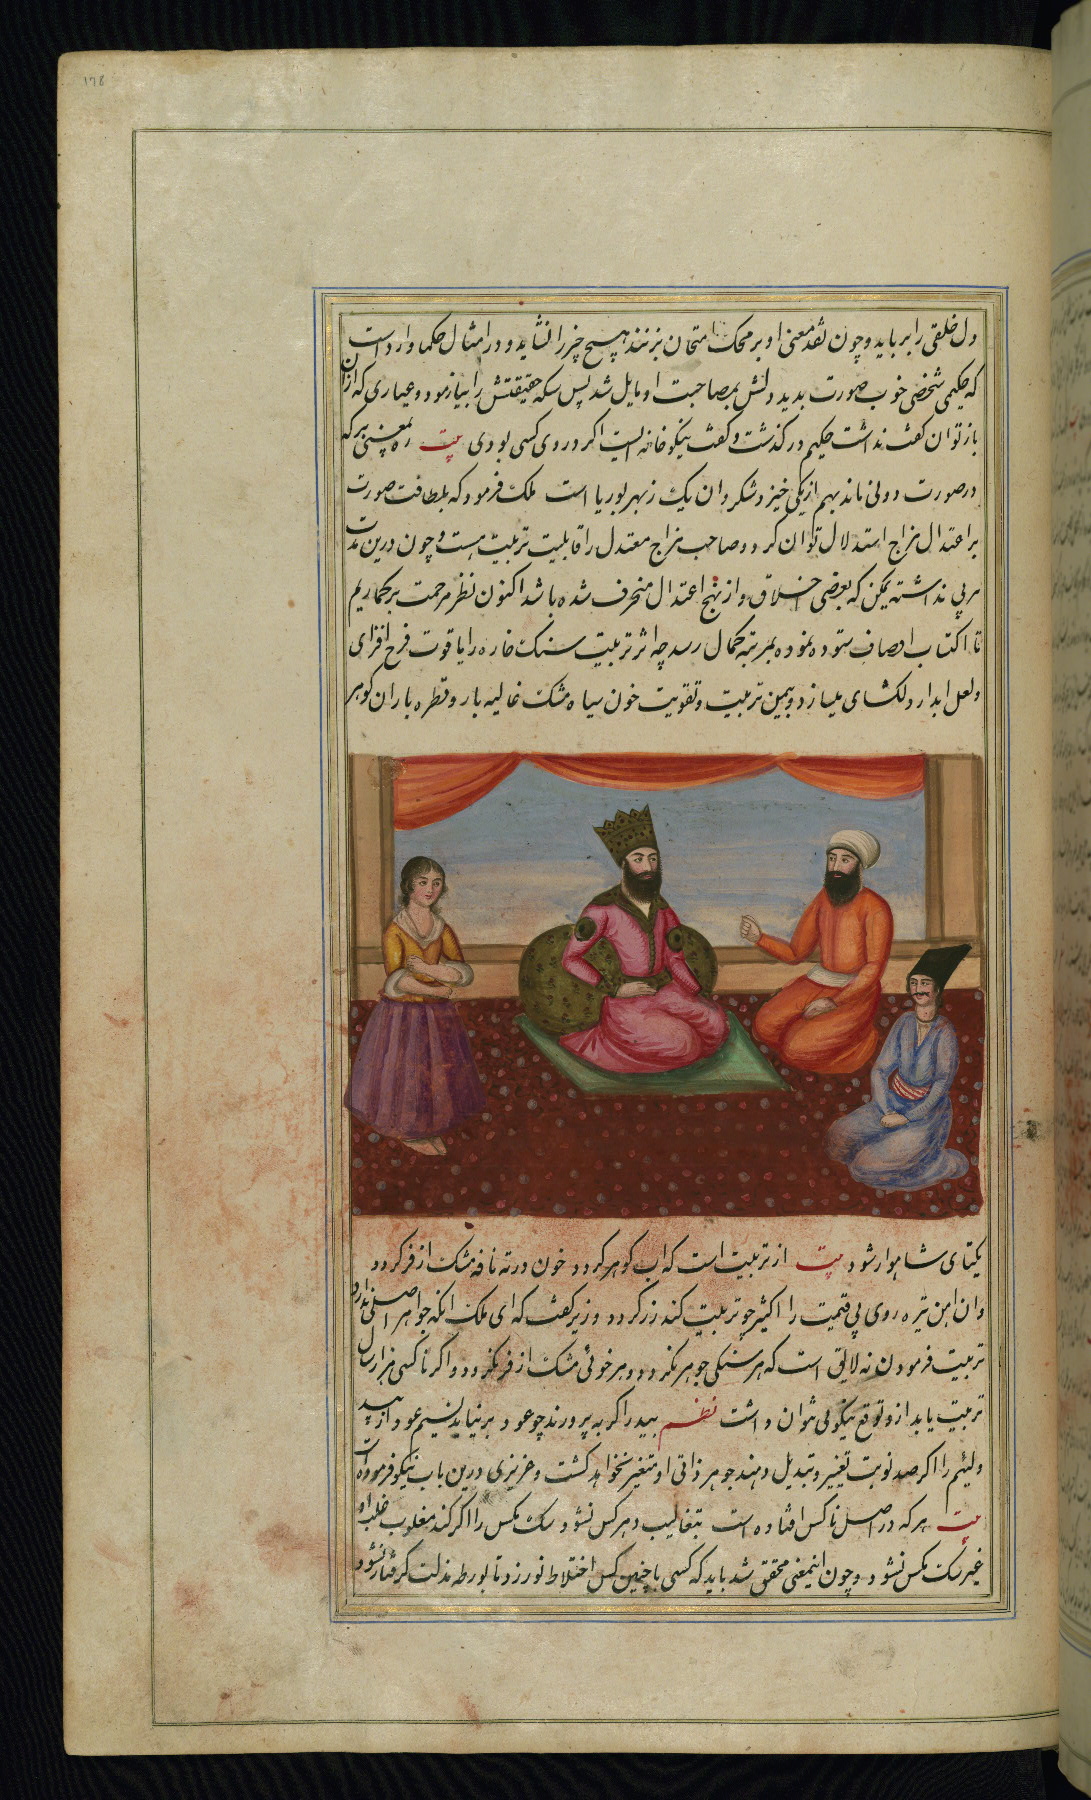 ۱۷۸
ول خلقی را برباید و چون نقد معنی او بر محک امتحان بزنند هیچ چیز را نشاید و در امثال حکما وارد است
که حکیمی شخصی خوب صورت بدید دلش بمصاحبت او مایل شد پس سکه حقیقتش را بیازمود و عیاری که از ان
باز توان گفت نداشت حکیم در گذشت و گفت نیکو خانه ایست اگر در وی کسی بودی بیت ره بمعنی بر که
در صورت دو نی ماند بهم از یکی خیزد شکر وان یک ز بهر بوریا است ملک فرمود که بلطافت صورت
بر اعتدال مزاج استدلال توان کرد و صاحب مزاج معتدل را قابلیت تربیت هست و چون درین مدت
مربی نداشته یمکن که بعضی اخلاق او از نهج اعتدال منحرف شده باشد اکنون نظر مرحمت بر گماریم
تا اکتساب اوصاف ستوده نموده بمرتبه کمال رسد چه اثر تربیت سنگ خاره را یاقوت فرح افزای
و لعل ابدار دلکشای میسازد و بیمن تربیت و تقویت خون سیاه مشک غالیه بار و قطره باران گوهر
یکتای شاهوار شود بیت از تربیت است که اب گوهر گردد خون در ته نافه مشک ازفر گردد
وان اهن تیره روی بی قیمت را اکثیر چو تربیت کند زر گردد وزیر گفت که ای ملک انکه جواهر اصلی ندارد
تربیت فرمودن نه لایق است که هر سنگی جوهر نگردد و هر خونی مشک ازفر نگردد و اگر ناکسی هزار سال
تربیت یابد ازو توقع نیکوئی نتوان داشت نظم بید را گر به پرورند چو عود بر نیاید نسیم عود از بید
و لئیم را اگر صد نوبت تغییر و تبدیل دهند جوهر ذاتی او متغیر نخواهد گشت و عزیزی درین باب نیکو فرموده است
بیت هر که در اصل ناکس افتاده است بتغالیب دهر کس نشود سگ مکس را اگر کند مغلوب قلب او
غیر سگ مکس نشود و چون اینمعنی محقق شد باید که کسی با چنین کس اختلاط نورزد تا بورطه مذلت گرفتار نشود